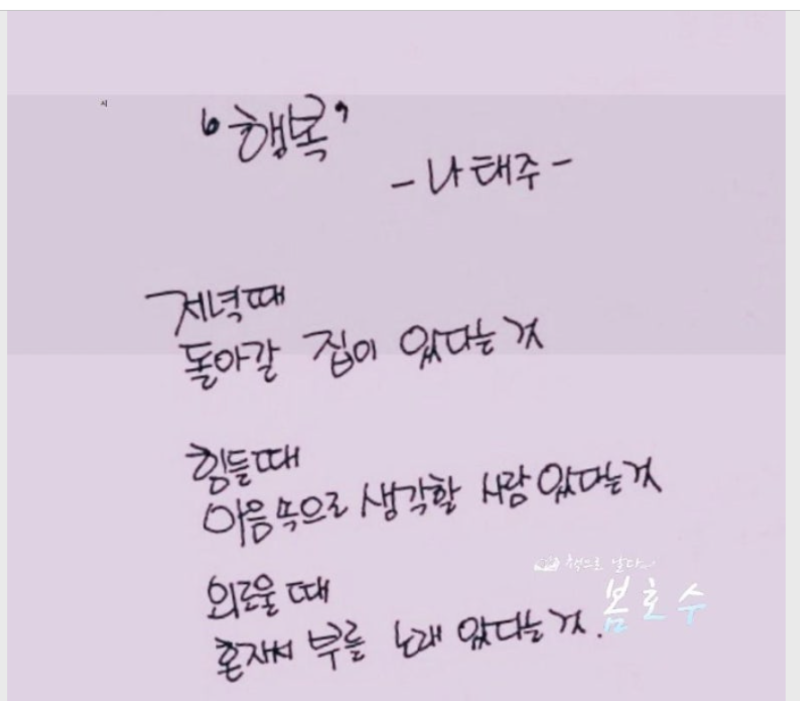 시
'행복'
- 나태주 -
저녁때
돌아갈 집이 있다는 것
힘들때
마음속으로 생각할 사람 있다는 것
외로울 때
혼자서 부를 노래 있다는 것.
책으로 날다
봄호수